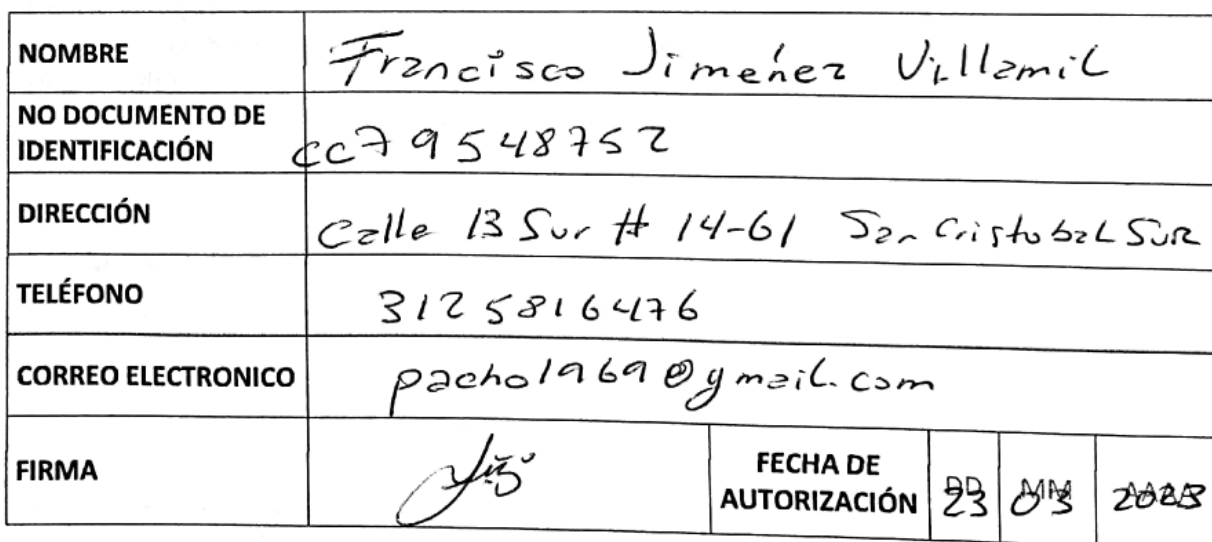 NOMBRE Francisco Jimenez Villamil
NO DOCUMENTO DE
IDENTIFICACIÓN cc79548752
DIRECCIÓN Calle 13 Sur # 14-61 San Cristobal Sur
TELÉFONO 3125816476
CORREO ELECTRONICO pacho1969@gmail.com
FIRMA FECHA DE
AUTORIZACIÓN DD MM AAAA
23 03 2023